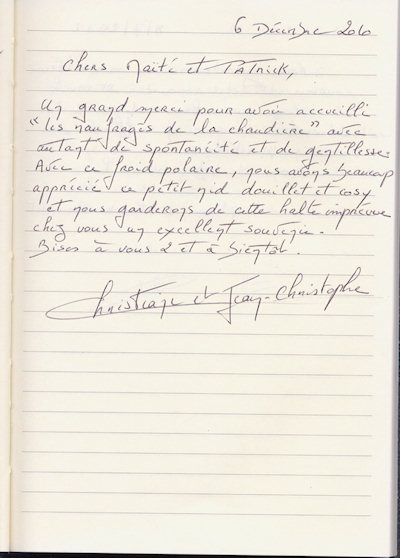 6 Décembre 2010
Chers Maïté et Patrick,
Un grand merci pour avoir accueilli
"les naufragés de la chaudière" avec
autant de spontanéité et de gentillesse.
Avec ce froid polaire, nous avons beaucoup
apprécié ce petit nid douillet et cosy
et nous garderons de cette halte imprévue
chez vous un excellent souvenir.
Bises à vous 2 et à bientôt.
Christiane et Jean-Christophe